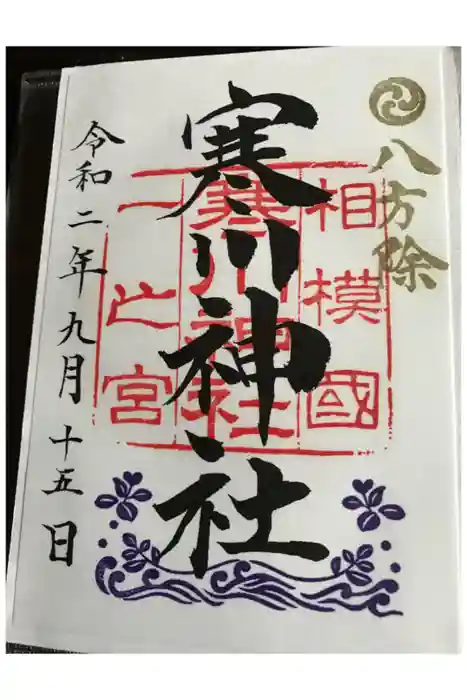 八方除
寒川神社
相模國
寒川神社
一之宮
令和二年九月十五日